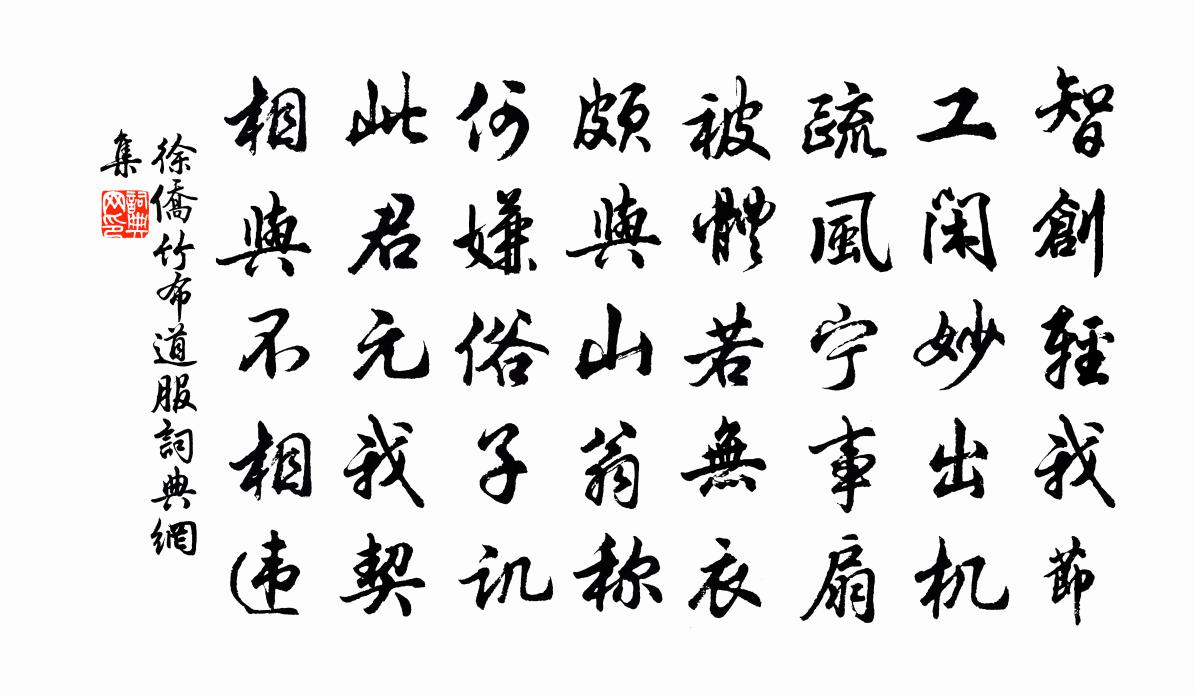 智創輕我節
工閑妙出机
疏風宁事扇
被體若無衣
頗與山翁称
何嫌俗子讥
此君元我契
相與不相违
徐僑竹布道服詞典網
集
詞典網印